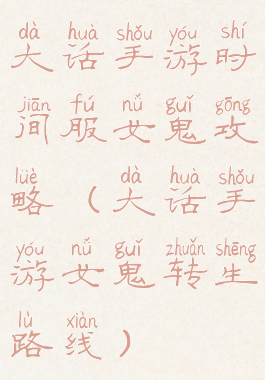 dà huà shǒu yóu shí
大话手游时
jiān fú nǚ guǐ gōng
间服女鬼攻
lüè dà huà shǒu
略（大话手
yóu nǚ guǐ zhuǎn shēng
游女鬼转生
lù xiàn
路线）